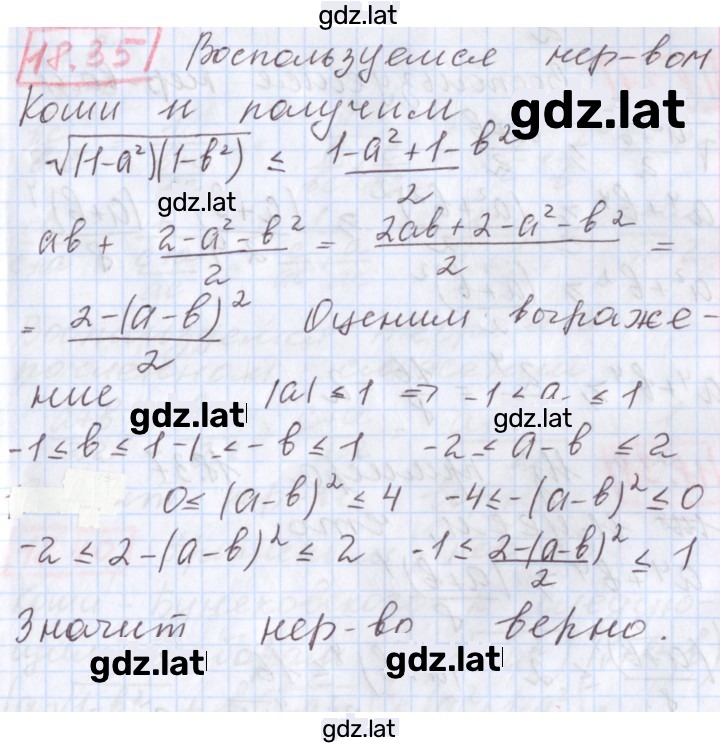 gdz.lat
18.35 Воспользуемся нер-вом
Коши и получим gdz.lat
√((1-a²)(1-b²)) ≤ (1-a²+1-b²)/2
gdz.lat
ab + (2-a²-b²)/2 = (2ab+2-a²-b²)/2 =
gdz.lat
= (2-(a-b)²)/2 Оценим выраже-
ние |a| ≤ 1 => -1 ≤ a ≤ 1
gdz.lat gdz.lat
-1 ≤ b ≤ 1 -1 ≤ -b ≤ 1 -2 ≤ a-b ≤ 2
0 ≤ (a-b)² ≤ 4 -4 ≤ -(a-b)² ≤ 0
-2 ≤ 2-(a-b)² ≤ 2 -1 ≤ (2-(a-b)²)/2 ≤ 1
Значит нер-во верно.
gdz.lat gdz.lat
gdz.lat